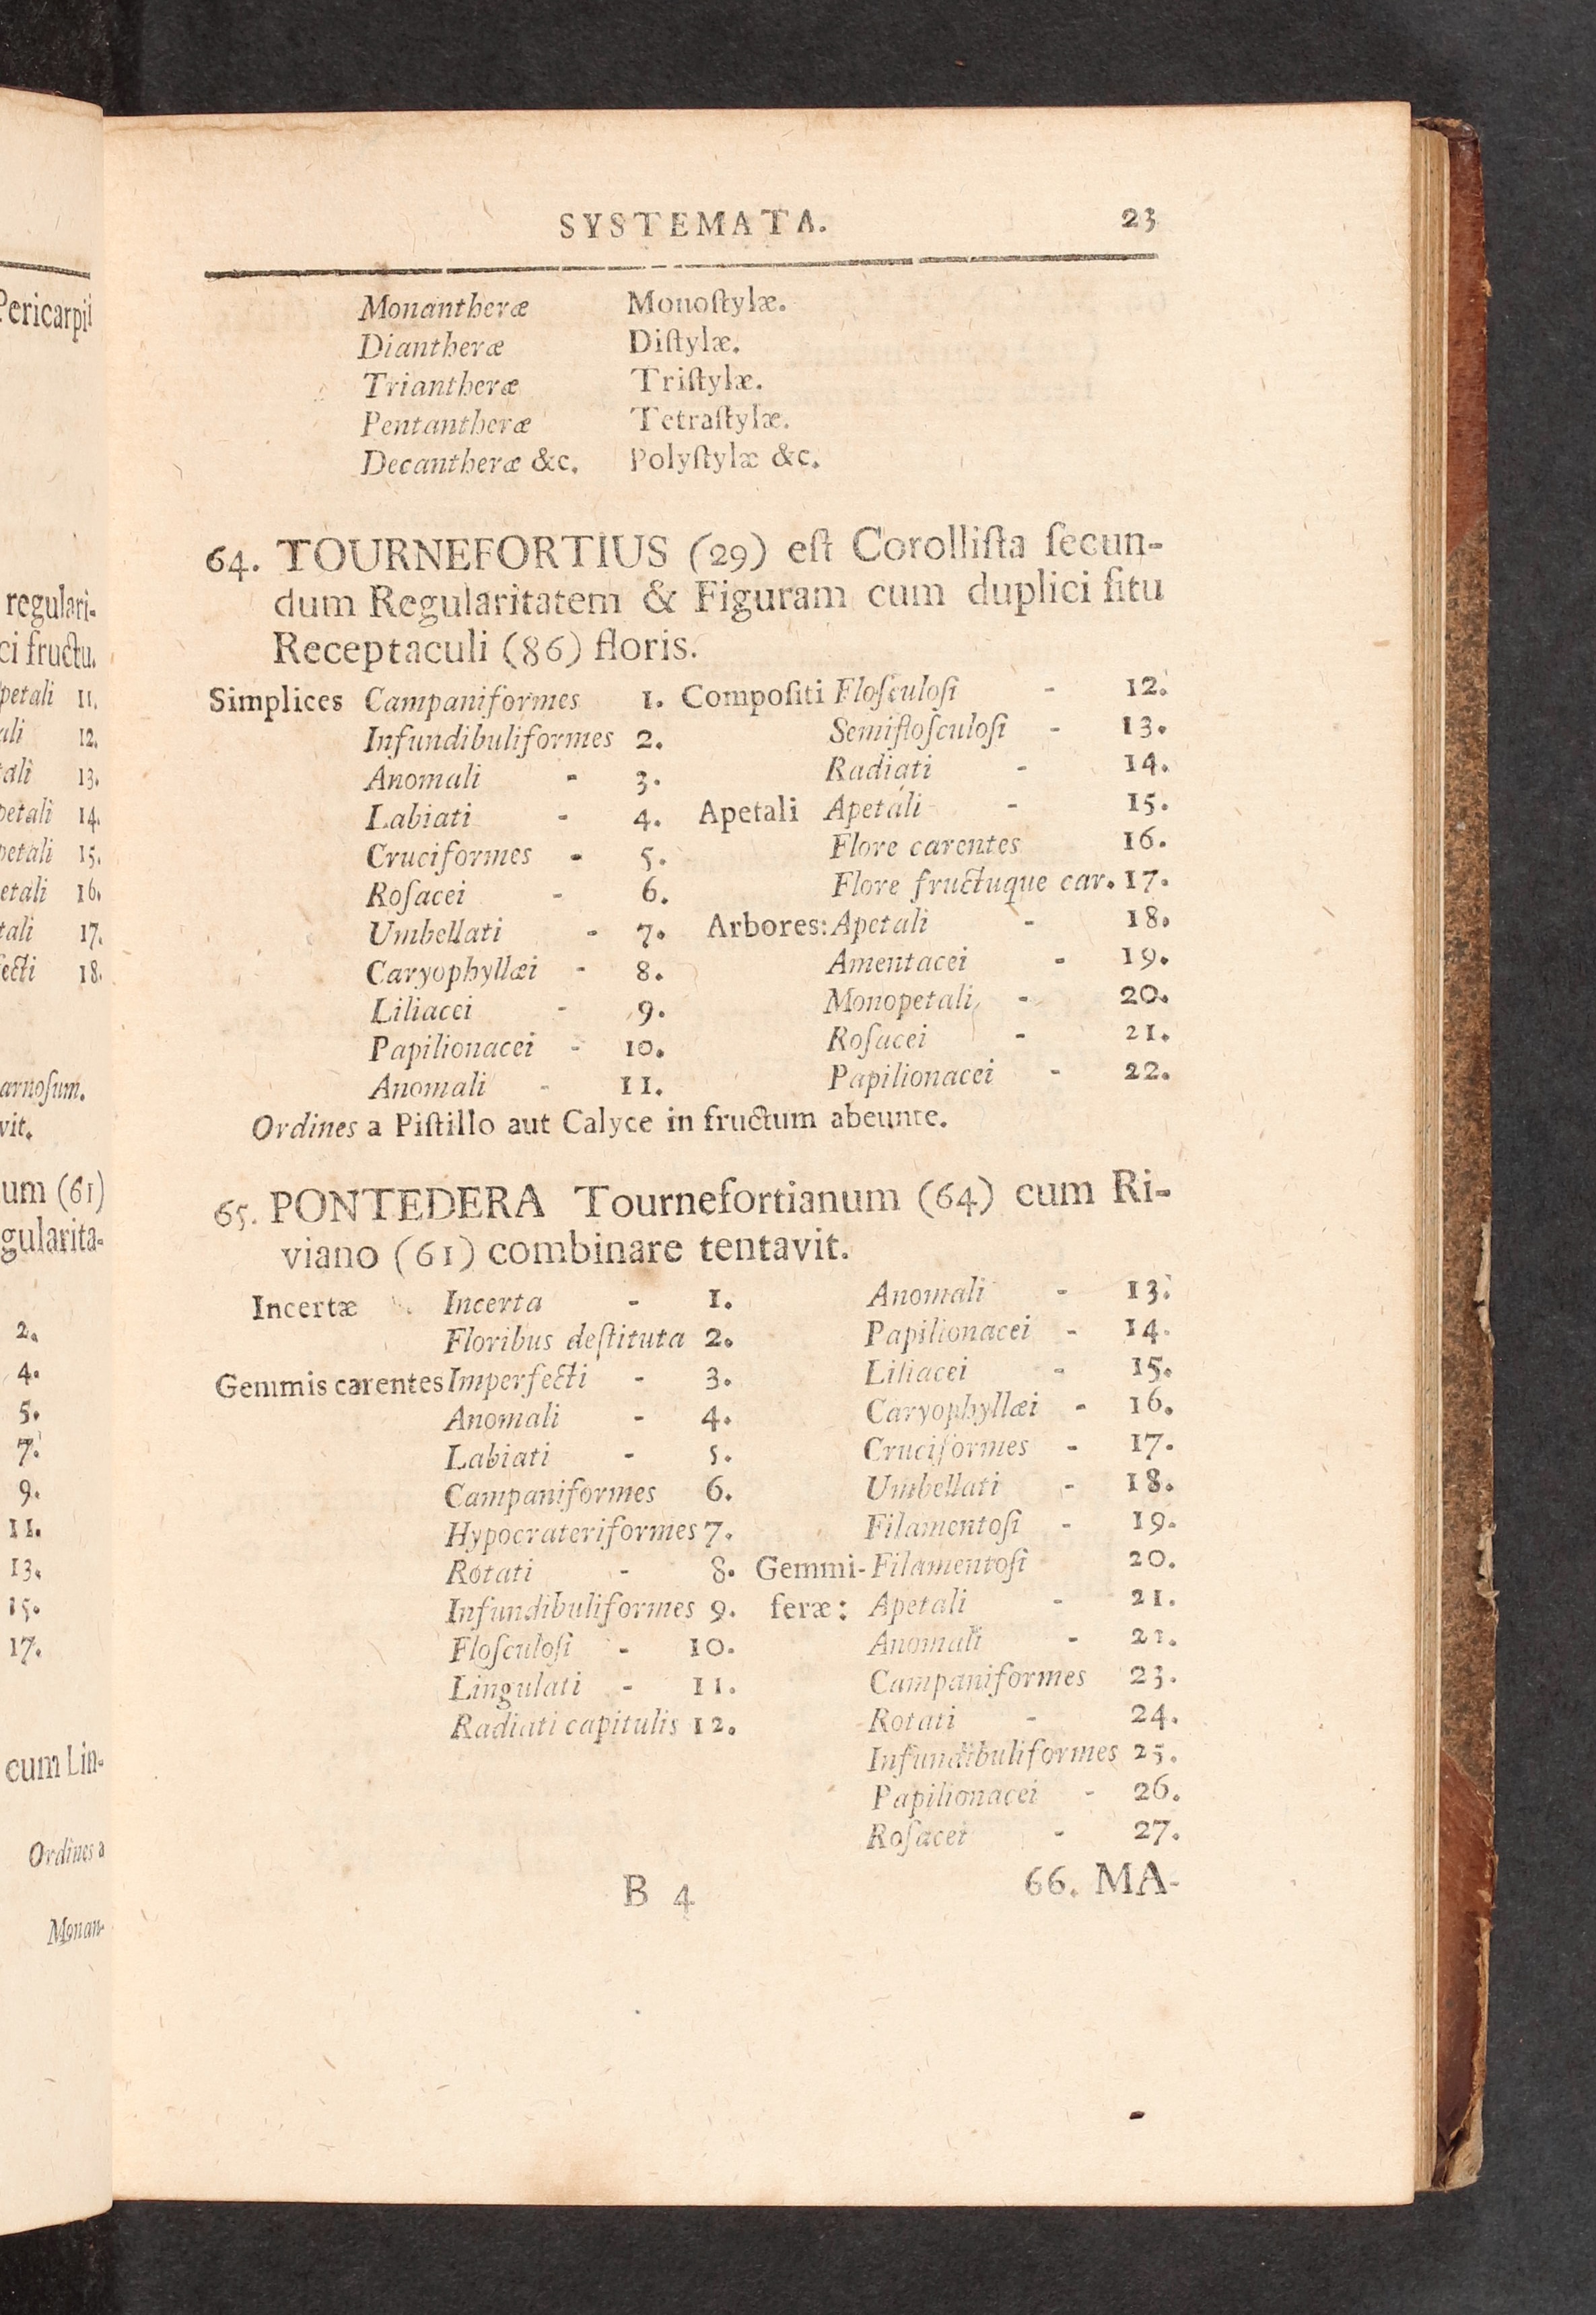 Pericarpii
regulari-
ci fructu.
petali 11.
ali 12.
tali 13.
petali 14.
petali 15.
etali 16.
tali 17.
fecti 18.
arnosum.
vit.
um (61)
gularita-
2.
4.
5.
7.
9.
11.
13.
15.
17.
cum Lin-
Ordines a
Monan-
SYSTEMATA. 23
Monantheræ Monoſtylæ.
Diantheræ Diſtylæ.
Triantheræ Triſtylæ.
Pentantheræ Tetraſtylæ.
Decantheræ &c. Polyſtylæ &c.
64. TOURNEFORTIUS (29) eſt Corolliſta ſecun-
dum Regularitatem & Figuram cum duplici ſitu
Receptaculi (86) floris.
Simplices Campaniformes 1. Compoſiti Floſculoſi - 12.
Infundibuliformes 2. Semifloſculoſi - 13.
Anomali - 3. Radiati - 14.
Labiati - 4. Apetali Apetali - 15.
Cruciformes - 5. Flore carentes 16.
Roſacei - 6. Flore fructuque car. 17.
Umbellati - 7. Arbores: Apetali - 18.
Caryophyllæi - 8. Amentacei - 19.
Liliacei - 9. Monopetali - 20.
Papilionacei - 10. Roſacei - 21.
Anomali - 11. Papilionacei - 22.
Ordines a Piſtillo aut Calyce in fructum abeunte.
65. PONTEDERA Tournefortianum (64) cum Ri-
viano (61) combinare tentavit.
Incertæ Incerta - 1. Anomali - 13.
Floribus deſtituta 2. Papilionacei - 14.
Gemmis carentes Imperfecti - 3. Liliacei - 15.
Anomali - 4. Caryophyllæi - 16.
Labiati - 5. Cruciformes - 17.
Campaniformes 6. Umbellati - 18.
Hypocrateriformes 7. Filamentoſi - 19.
Rotati - 8. Gemmi- Filamentoſi 20.
Infundibuliformes 9. feræ: Apetali - 21.
Floſculoſi - 10. Anomali - 21.
Lingulati - 11. Campaniformes 23.
Radiati capitulis 12. Rotati - 24.
Infundibuliformes 25.
Papilionacei - 26.
Roſacei - 27.
B 4 66. MA-